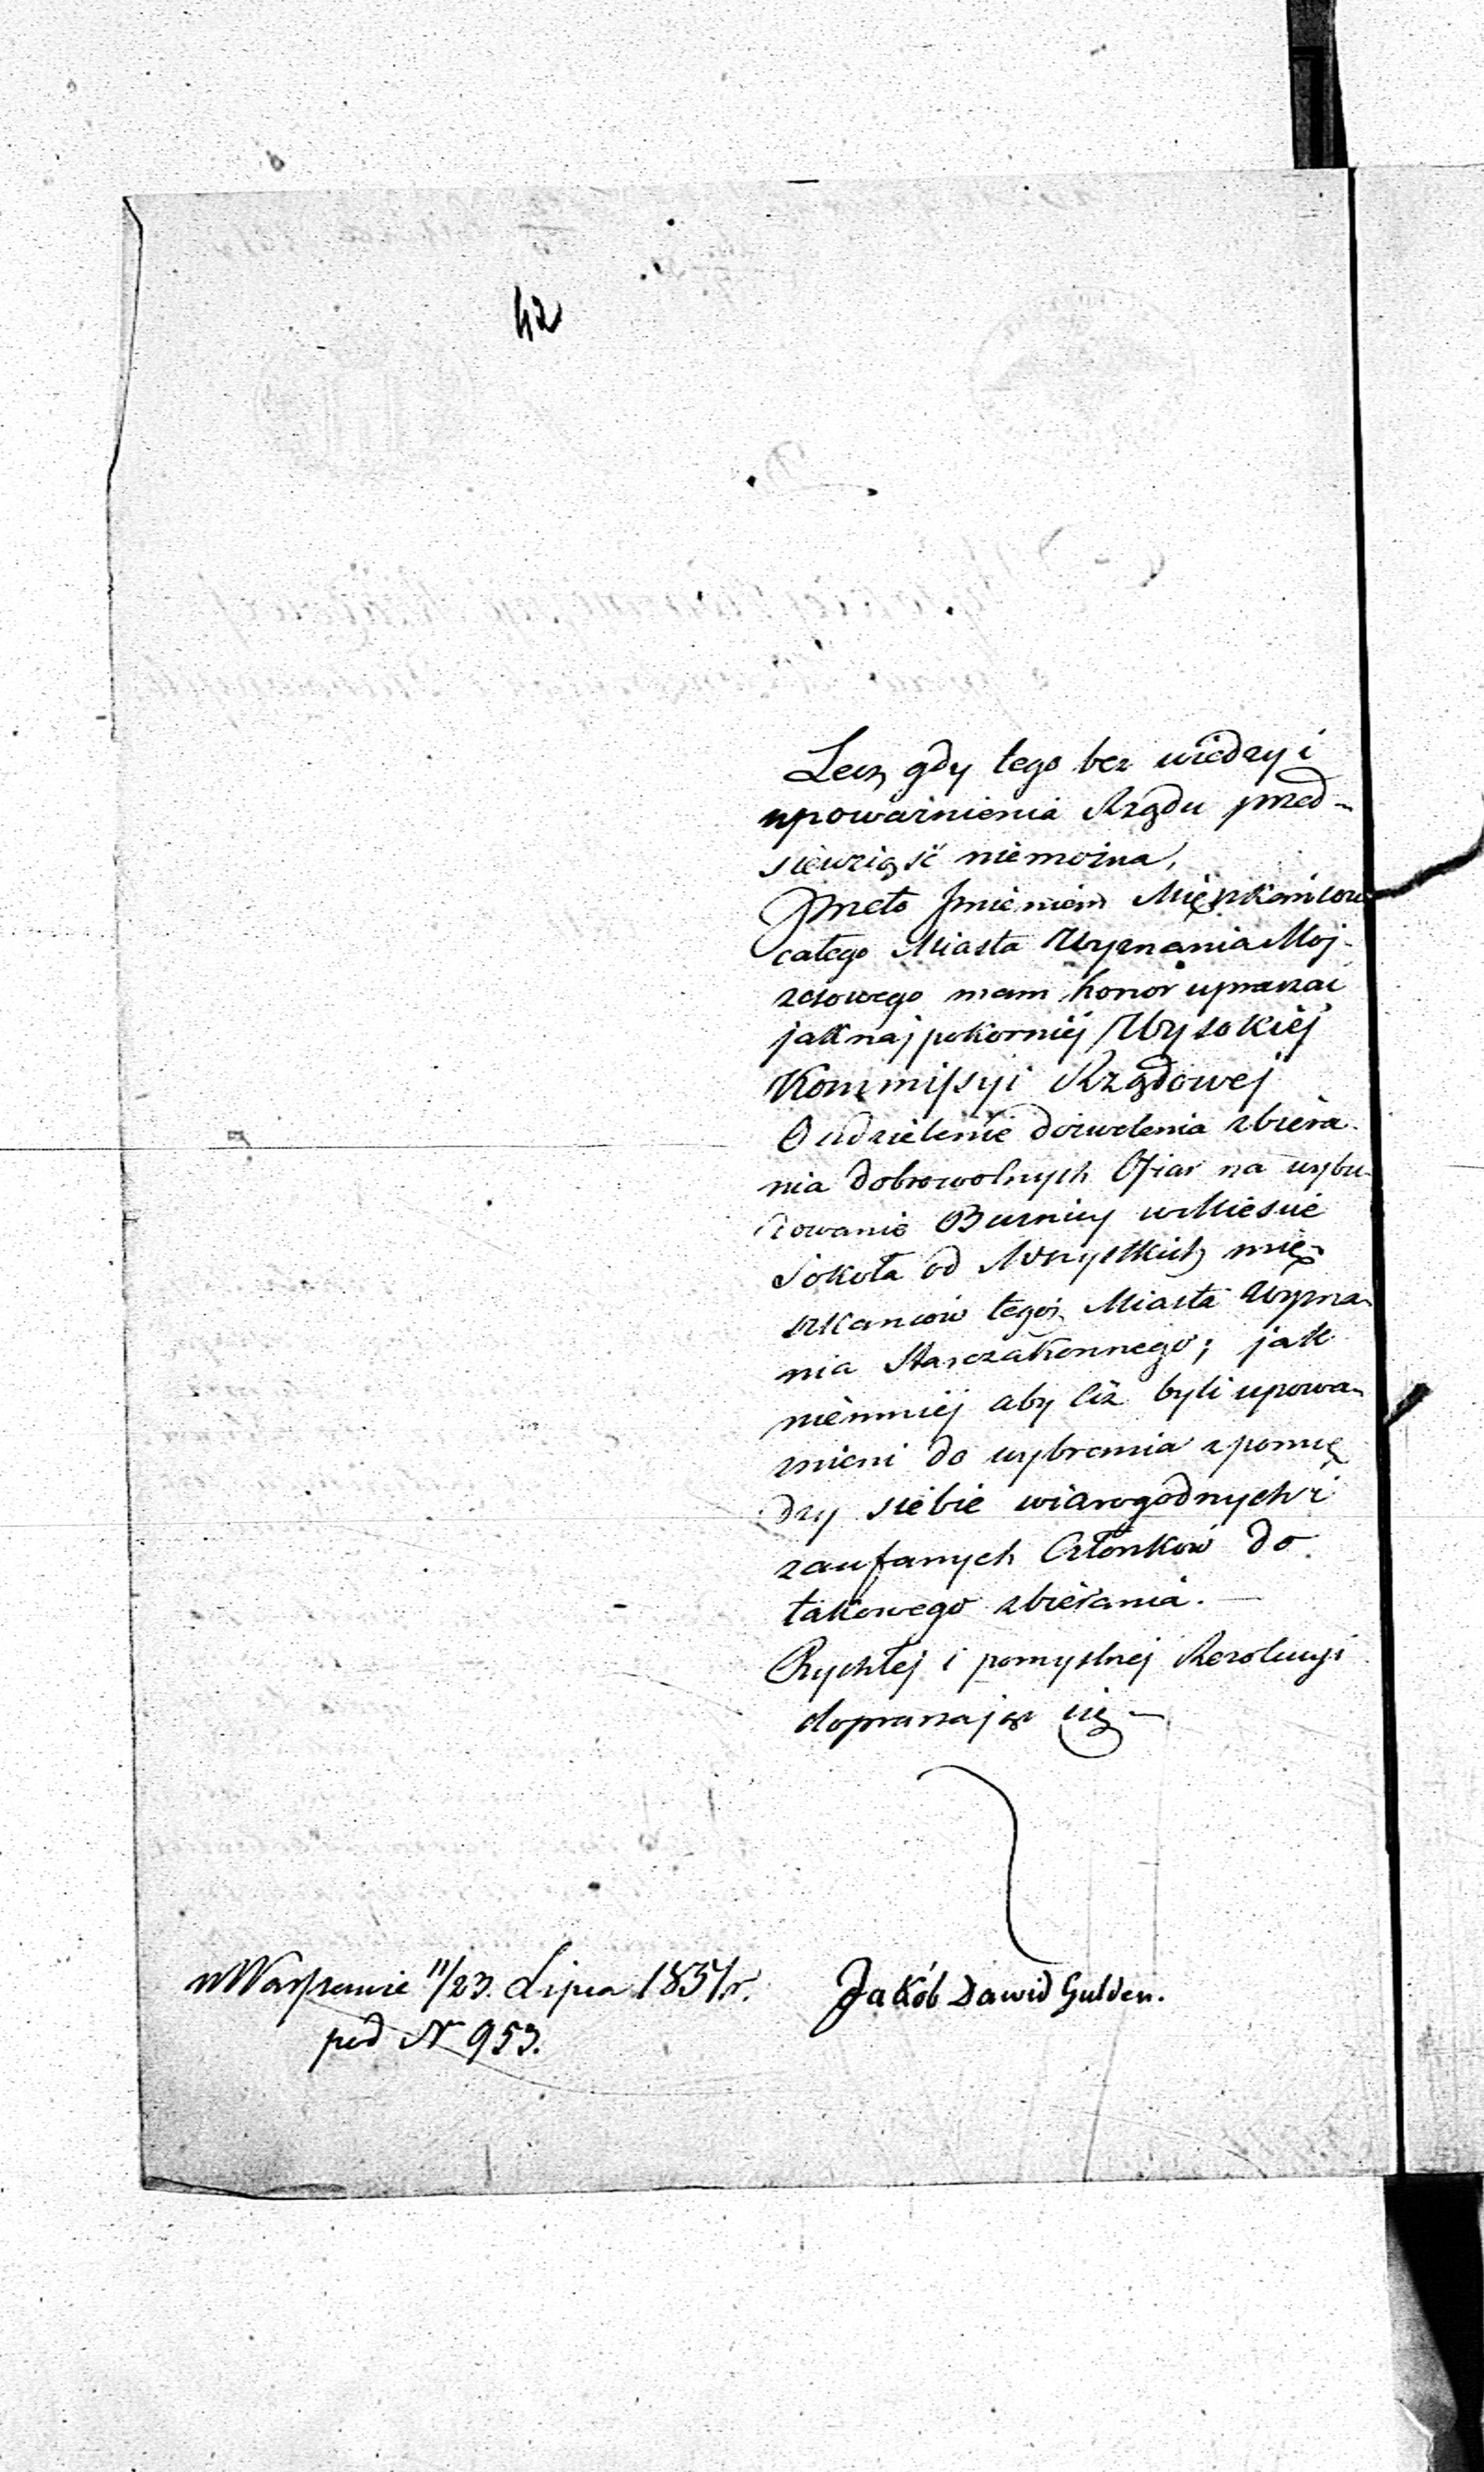 42
Lecz gdy tego bez wiedzy i
upoważnienia Rządu przed-
siewziąść niemożna,
Przeto Imieniem Mięszkańcow
całego Miasta Wyznania Moj-
zeszowego mam honor upraszać
jaknajpokorniej Wysokiej
Kommissyi Rządowej
O udzielenie dozwolenia zbiera-
nia dobrowolnych Ofiar na wybu-
dowanie Bużnicy w Mieście
Sokoła od Wszystkich mię-
szkanców tegoż Miasta Wyzna-
nia Starozakonnego; jak
niemniej aby Ciż byli upowa-
żnieni do wybrania z pomię
dzy siebie wiarogodnych i
zaufanych Członków do
takowego zbierania. —
Rychłej i pomyslnej Rezolucyi
dopraszając się —
w Warszawie 11/23. Lipca 1837 r.
pod N 953.
Jakób Dawid Gulden.